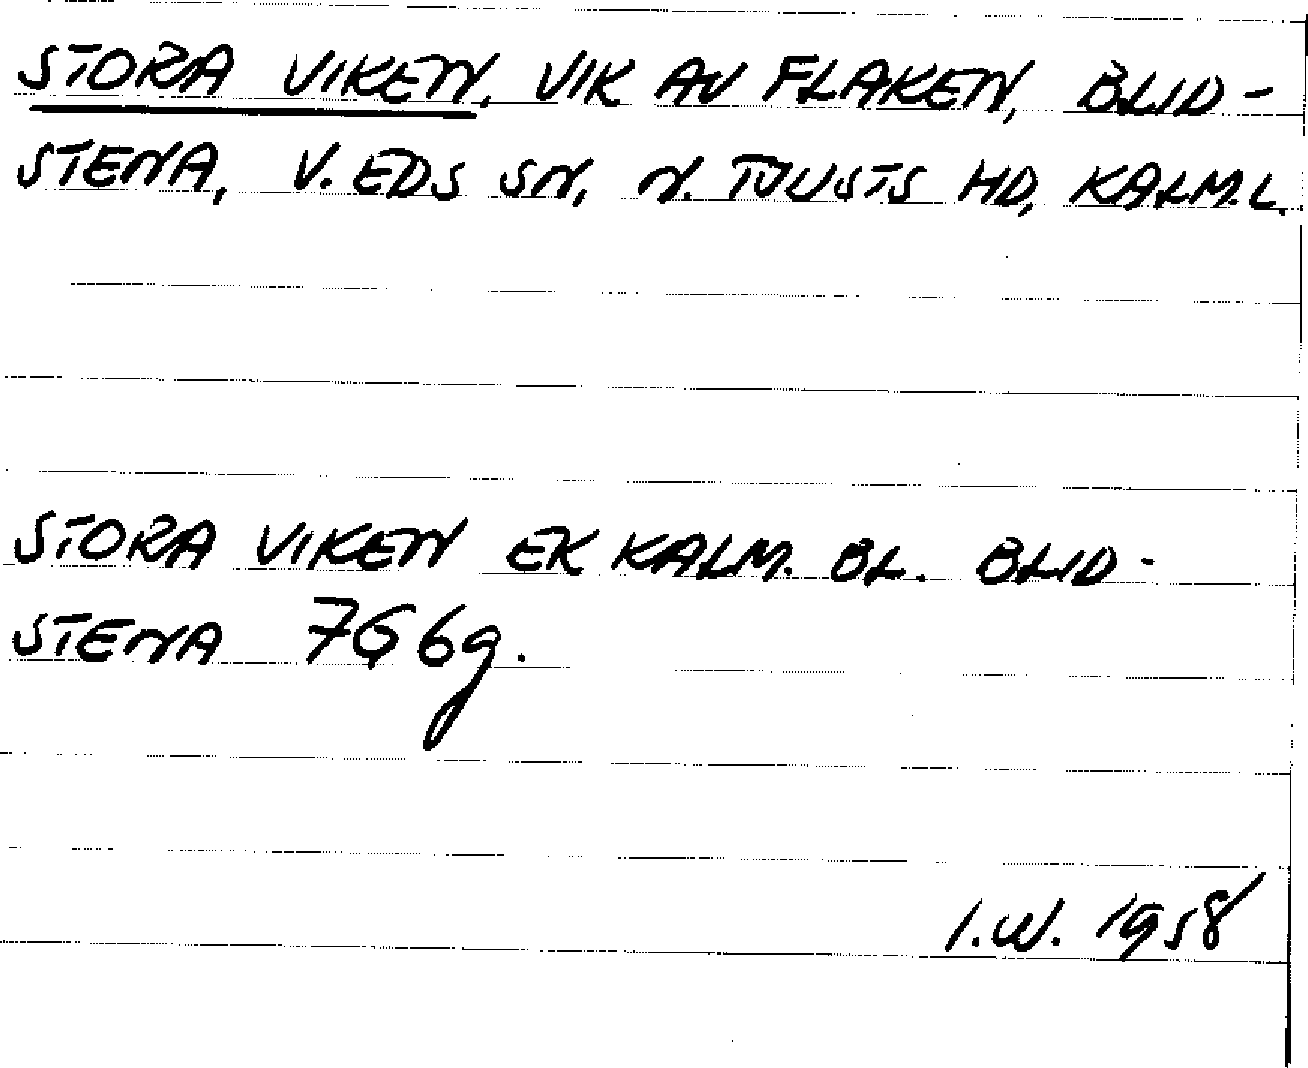 STORA VIKEN, VIK AV FLAKEN, BLID-
STENA, V. EDS SN, N. TJUSTS HD, KALM.L.
STORA VIKEN EK KALM. BL. BLID-
STENA 7G 6g.
I.W. 1958